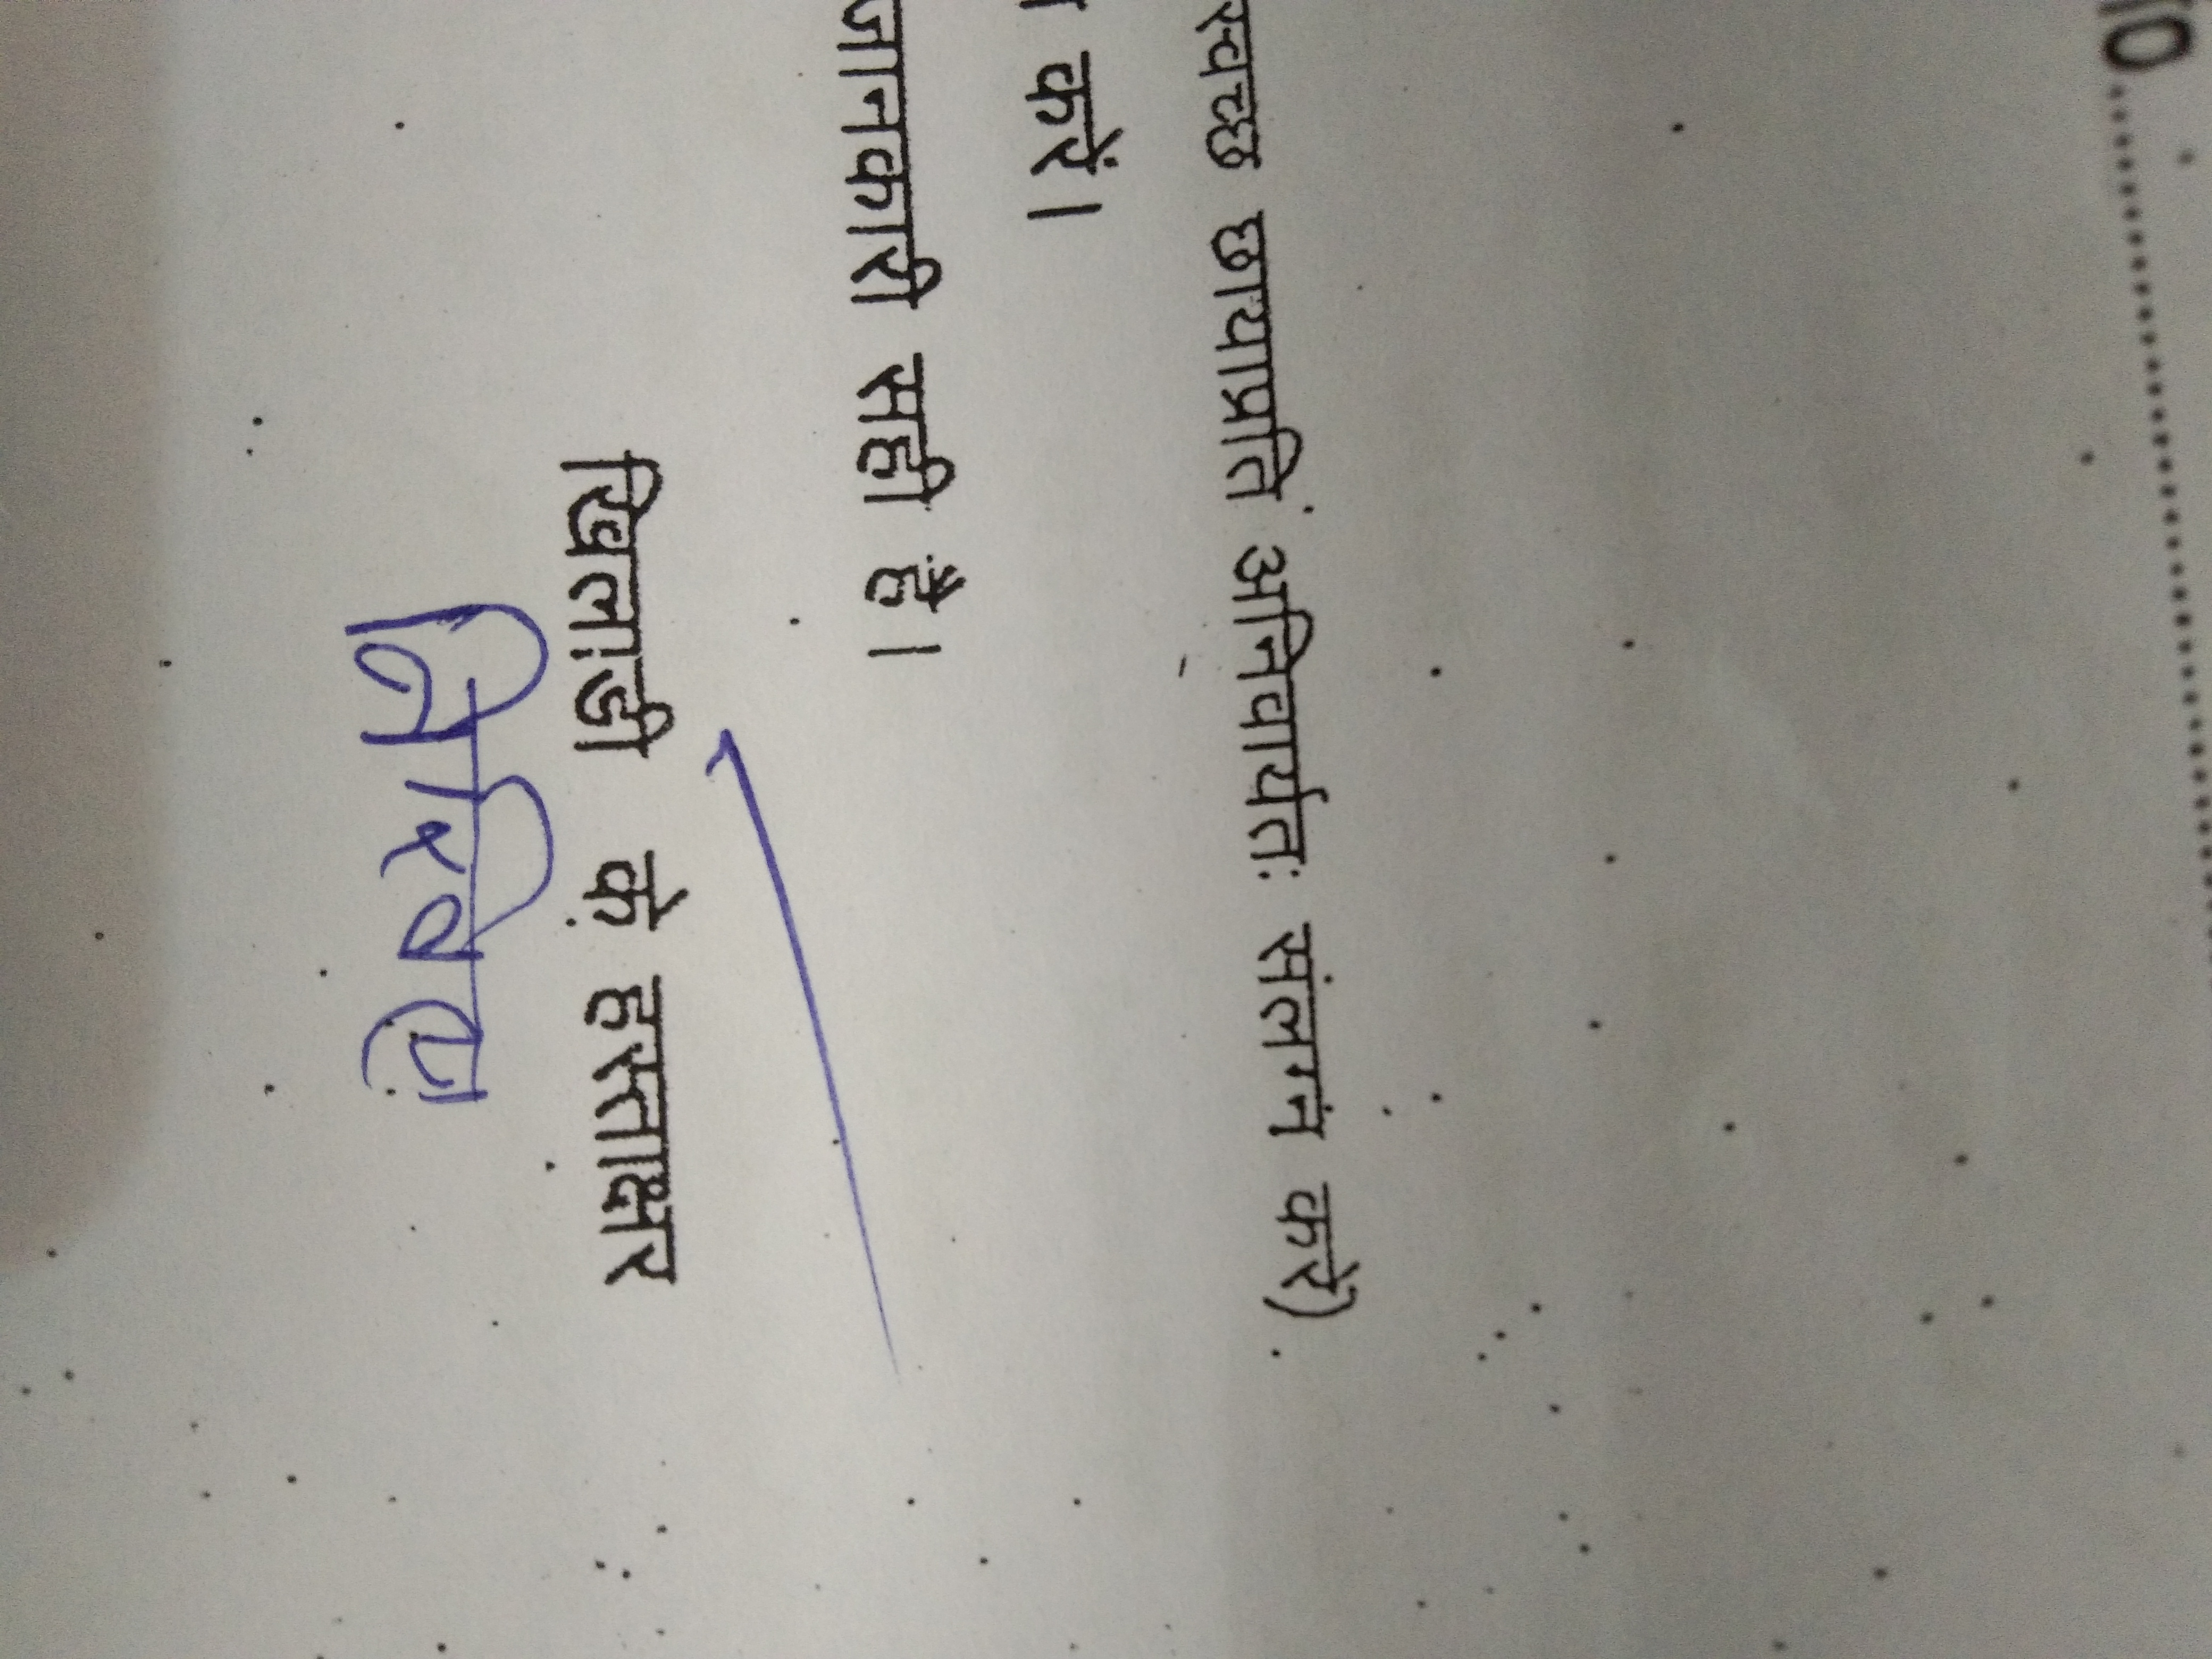 स्वच्छ छायाप्रति अनिवार्यतः संलग्न करें)
करें।
जानकारी सही है।
खिलाड़ी के हस्ताक्षर
निखिल